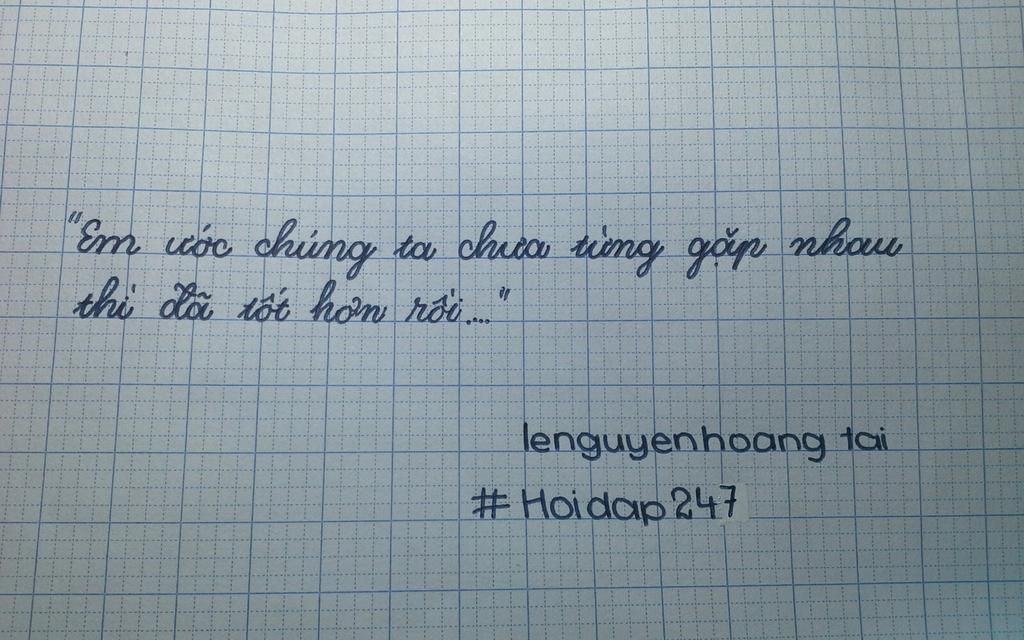 "Em ước chúng ta chưa từng gặp nhau
thì đã tốt hơn rồi...."
lenguyenhoang tai
# Hoidap247